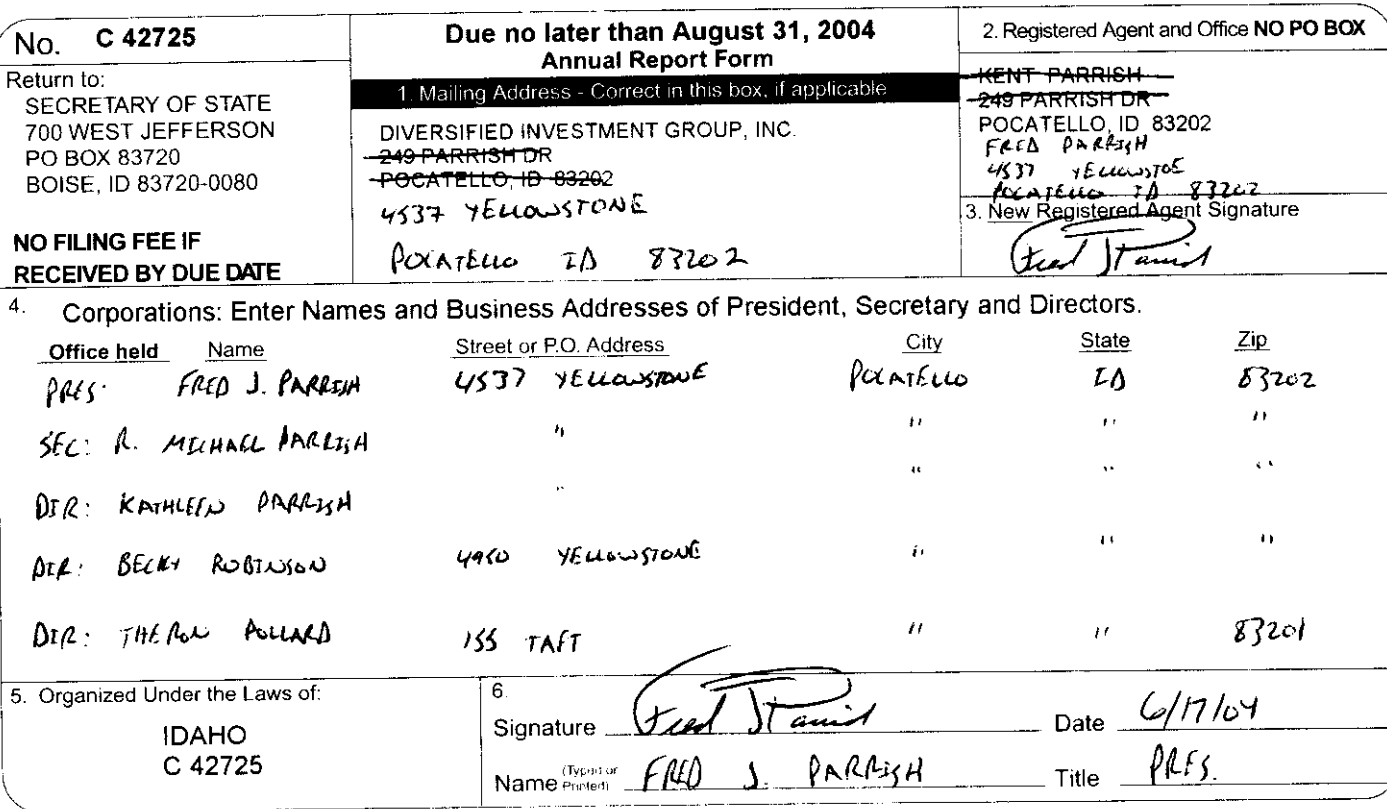 No. C 42725
Return to:
SECRETARY OF STATE
700 WEST JEFFERSON
PO BOX 83720
BOISE, ID 83720-0080
NO FILING FEE IF
RECEIVED BY DUE DATE
Due no later than August 31, 2004
Annual Report Form
1. Mailing Address - Correct in this box, if applicable
DIVERSIFIED INVESTMENT GROUP, INC.
249 PARRISH DR
POCATELLO, ID 83202
4537 YELLOWSTONE
POCATELLO ID 83202
2. Registered Agent and Office NO PO BOX
KENT PARRISH
249 PARRISH DR
POCATELLO, ID 83202
FRED PARRISH
4537 YELLOWSTOE
POCATELLO ID 83202
3. New Registered Agent Signature
Fred J Parrish
4. Corporations: Enter Names and Business Addresses of President, Secretary and Directors.
Office held Name Street or P.O. Address City State Zip
PRES. FRED J. PARRISH 4537 YELLOWSTONE POCATELLO ID 83202
SEC: R. MICHAEL PARRISH " " " "
DIR: KATHLEEN PARRISH " " " "
DIR: BECKY ROBINSON 4950 YELLOWSTONE " " "
DIR: THERON POLLARD 155 TAFT " " 83201
5. Organized Under the Laws of:
IDAHO
C 42725
6.
Signature Fred J Parrish Date 6/17/04
Name (Typed or Printed) FRED J. PARRISH Title PRES.